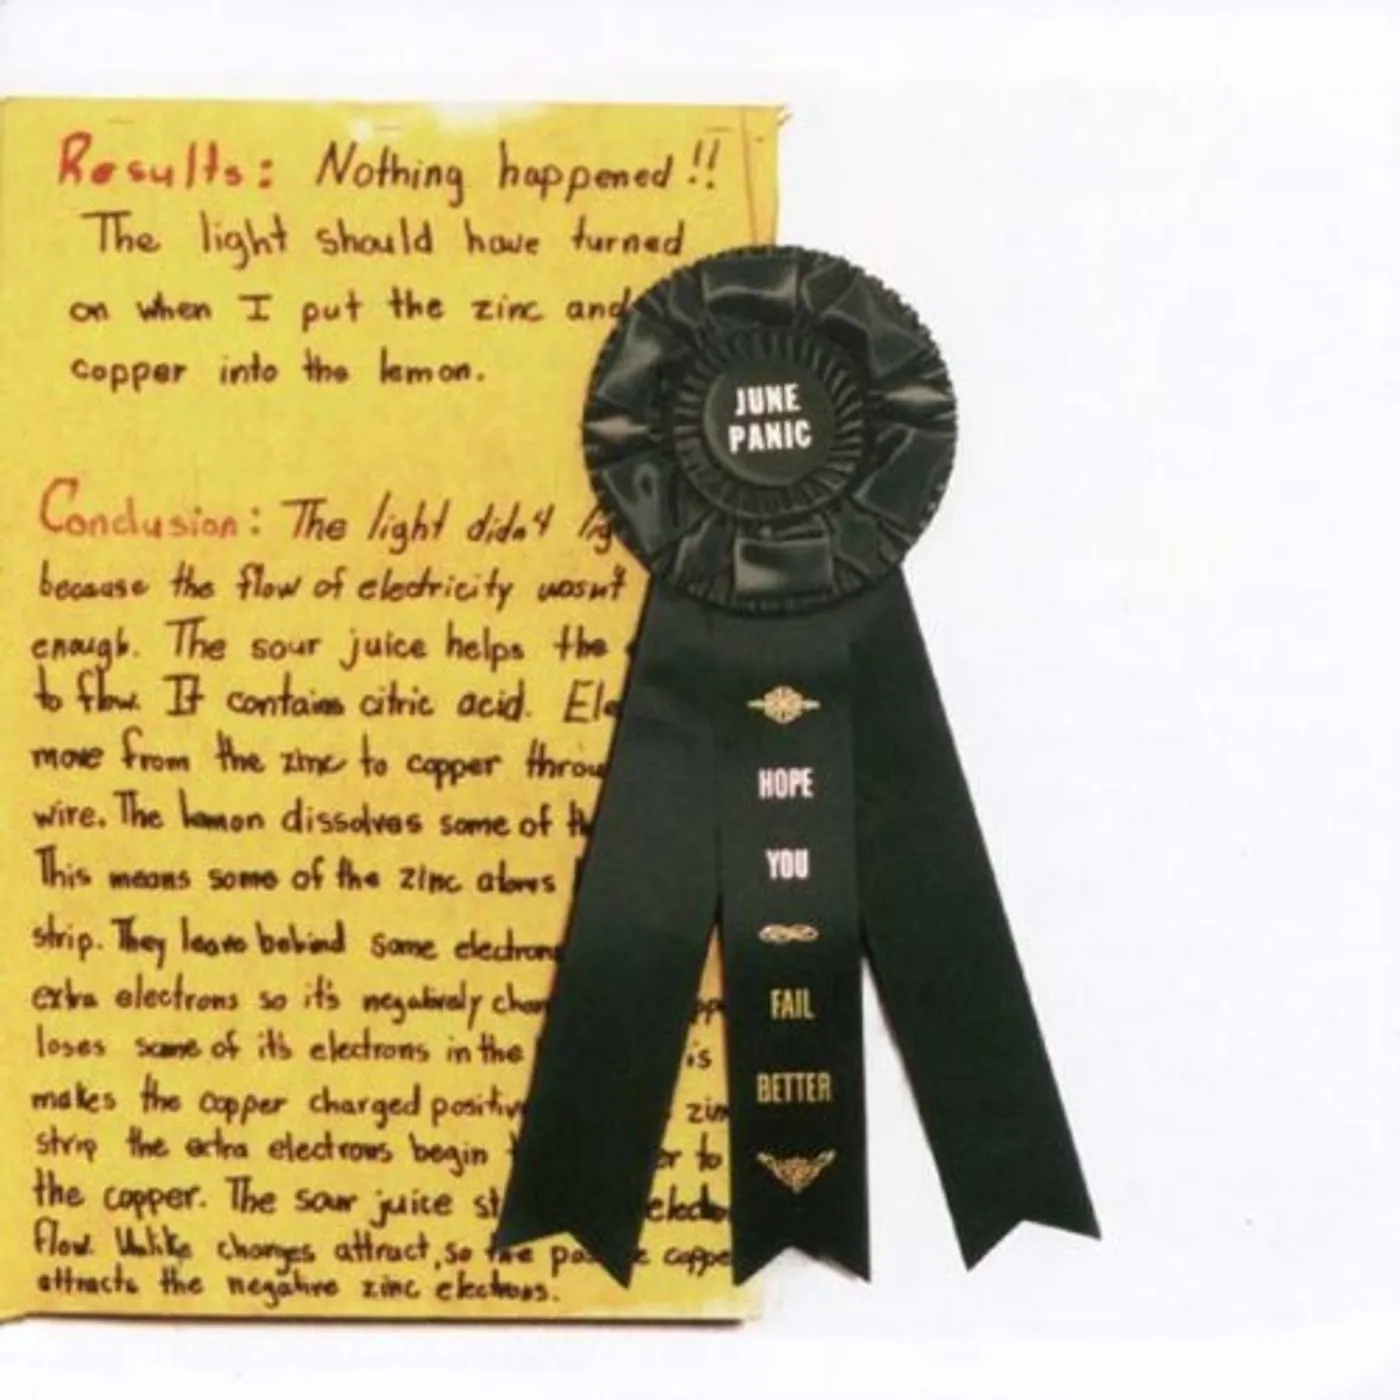 Results: Nothing happened!!
The light should have turned
on when I put the zinc and
copper into the lemon.
Conclusion: The light didn't lig
because the flow of electricity wasn't
enough. The sour juice helps the
to flow. It contains citric acid. Ele
move from the zinc to copper throu
wire. The lemon dissolves some of th
This means some of the zinc atoms
strip. They leave behind some electrons
extra electrons so it's negatively char
loses some of it's electrons in the is
makes the copper charged positiv zin
strip the extra electrons begin er to
the copper. The sour juice st electro
flow. Unlike charges attract, so the po e coppe
attracts the negative zinc electrons.
JUNE
PANIC
HOPE
YOU
FAIL
BETTER